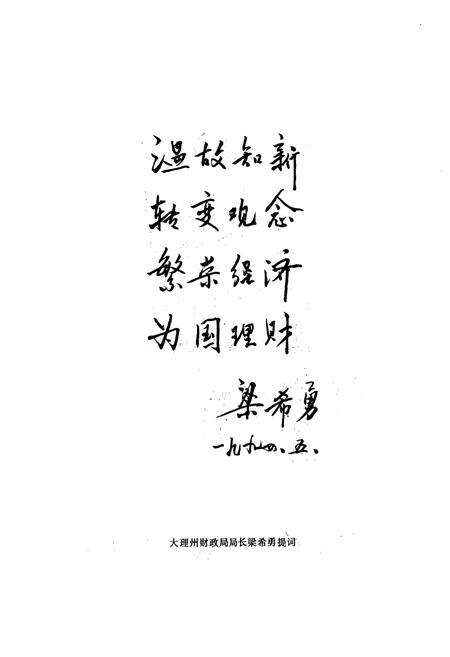 温故知新
转变观念
繁荣经济
为国理财
梁希勇
一九九四、五、
大理州财政局局长梁希勇提词